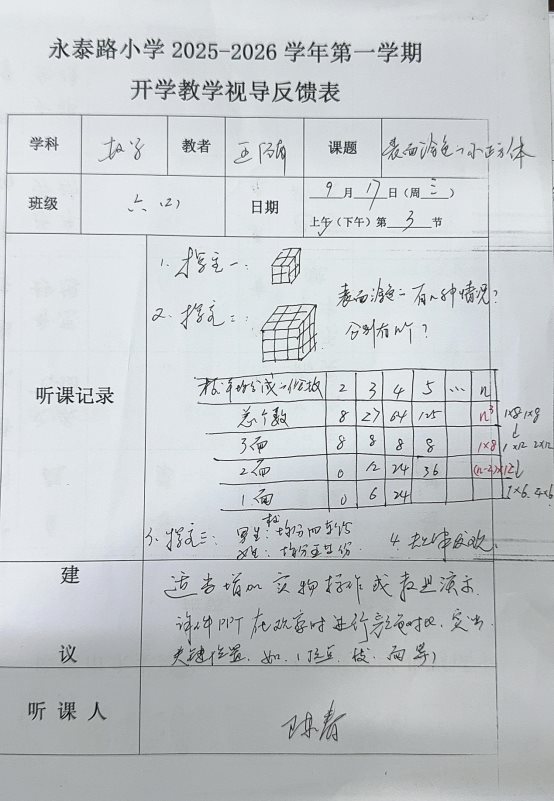 永泰路小学 2025-2026 学年第一学期
开学教学视导反馈表
学科 数学 教者 课题 表面涂色的小正方体
班级 六(2) 日期 9月17日(周三)
上午(下午)第3节
听课记录
1. 探究一:
2. 探究二: 表面涂色的有几种情况?
分别有几个?
棱平均分成的份数 2 3 4 5 … n
总个数 8 27 64 125 n³ 1×8 1×8
3面 8 8 8 8 1×8 1×12 2×12
2面 0 12 24 36 (n-2)×12
1面 0 6 24 1×6 4×6
3. 探究三: 男生: 棱均分四等份
女生: 均分五等份 4.
建议
适当增加实物操作或教具演示
课件PPT在观察时进行颜色对比,突出
关键位置,如(顶点、棱、面等)
听课人